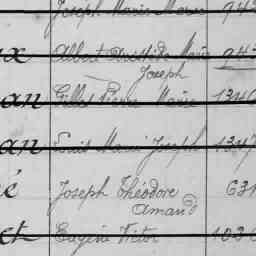 Joseph Marie Marce 943
ux Albert Aristide Marie 943
Joseph
an Gilles Pierre Marie 1340
an Louis Marie Joseph 1347
é Joseph Théodore 631
Amand
et Eugène Victor 1030